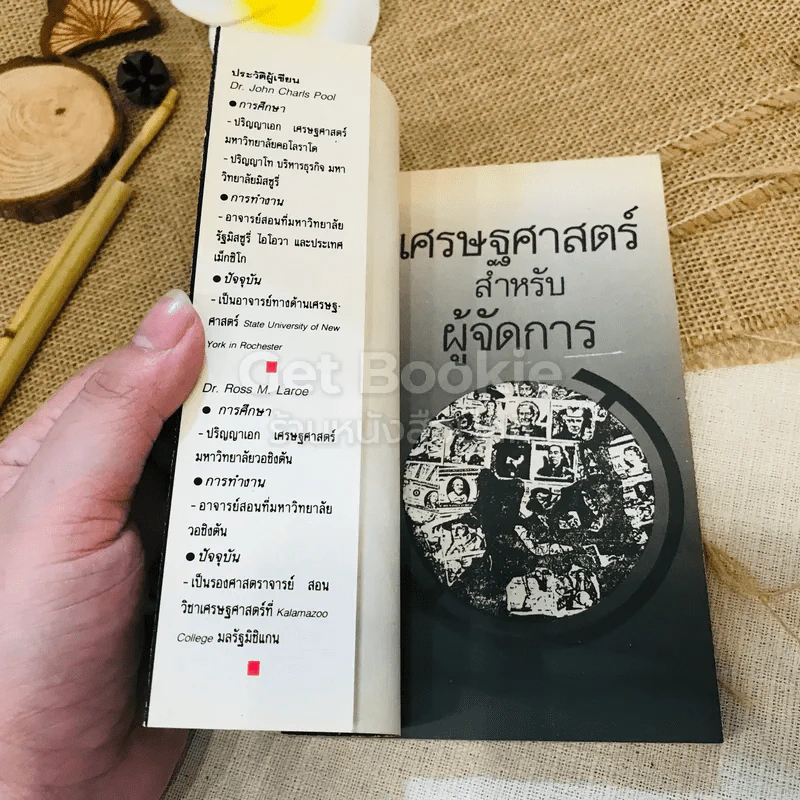 ประวัติผู้เขียน
Dr. John Charls Pool
● การศึกษา
- ปริญญาเอก เศรษฐศาสตร์
มหาวิทยาลัยคอโลราโด
- ปริญญาโท บริหารธุรกิจ มหา
วิทยาลัยมิสซูรี่
● การทำงาน
- อาจารย์สอนที่มหาวิทยาลัย
รัฐมิสซูรี่ ไอโอวา และประเทศ
เม็กซิโก
● ปัจจุบัน
- เป็นอาจารย์ทางด้านเศรษฐ-
ศาสตร์ State University of New
York in Rochester
Dr. Ross M. Laroe
● การศึกษา
- ปริญญาเอก เศรษฐศาสตร์
มหาวิทยาลัยวอชิงตัน
● การทำงาน
- อาจารย์สอนที่มหาวิทยาลัย
วอชิงตัน
● ปัจจุบัน
- เป็นรองศาสตราจารย์ สอน
วิชาเศรษฐศาสตร์ที่ Kalamazoo
College มลรัฐมิชิแกน
เศรษฐศาสตร์
สำหรับ
ผู้จัดการ
Get Bookie